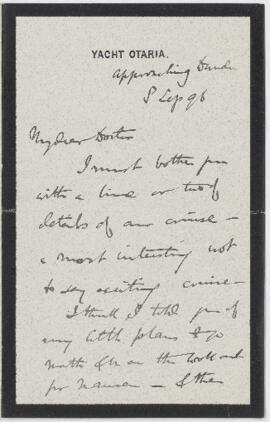 YACHT OTARIA.
approaching
8 Sep 96
My dear Doctor
I must bother you
with a line or two of
details of our cruise –
a most interesting not
to say exciting cruise –
I think I told you of
my little plans to go
north & be on the look out
for Nansen – & then